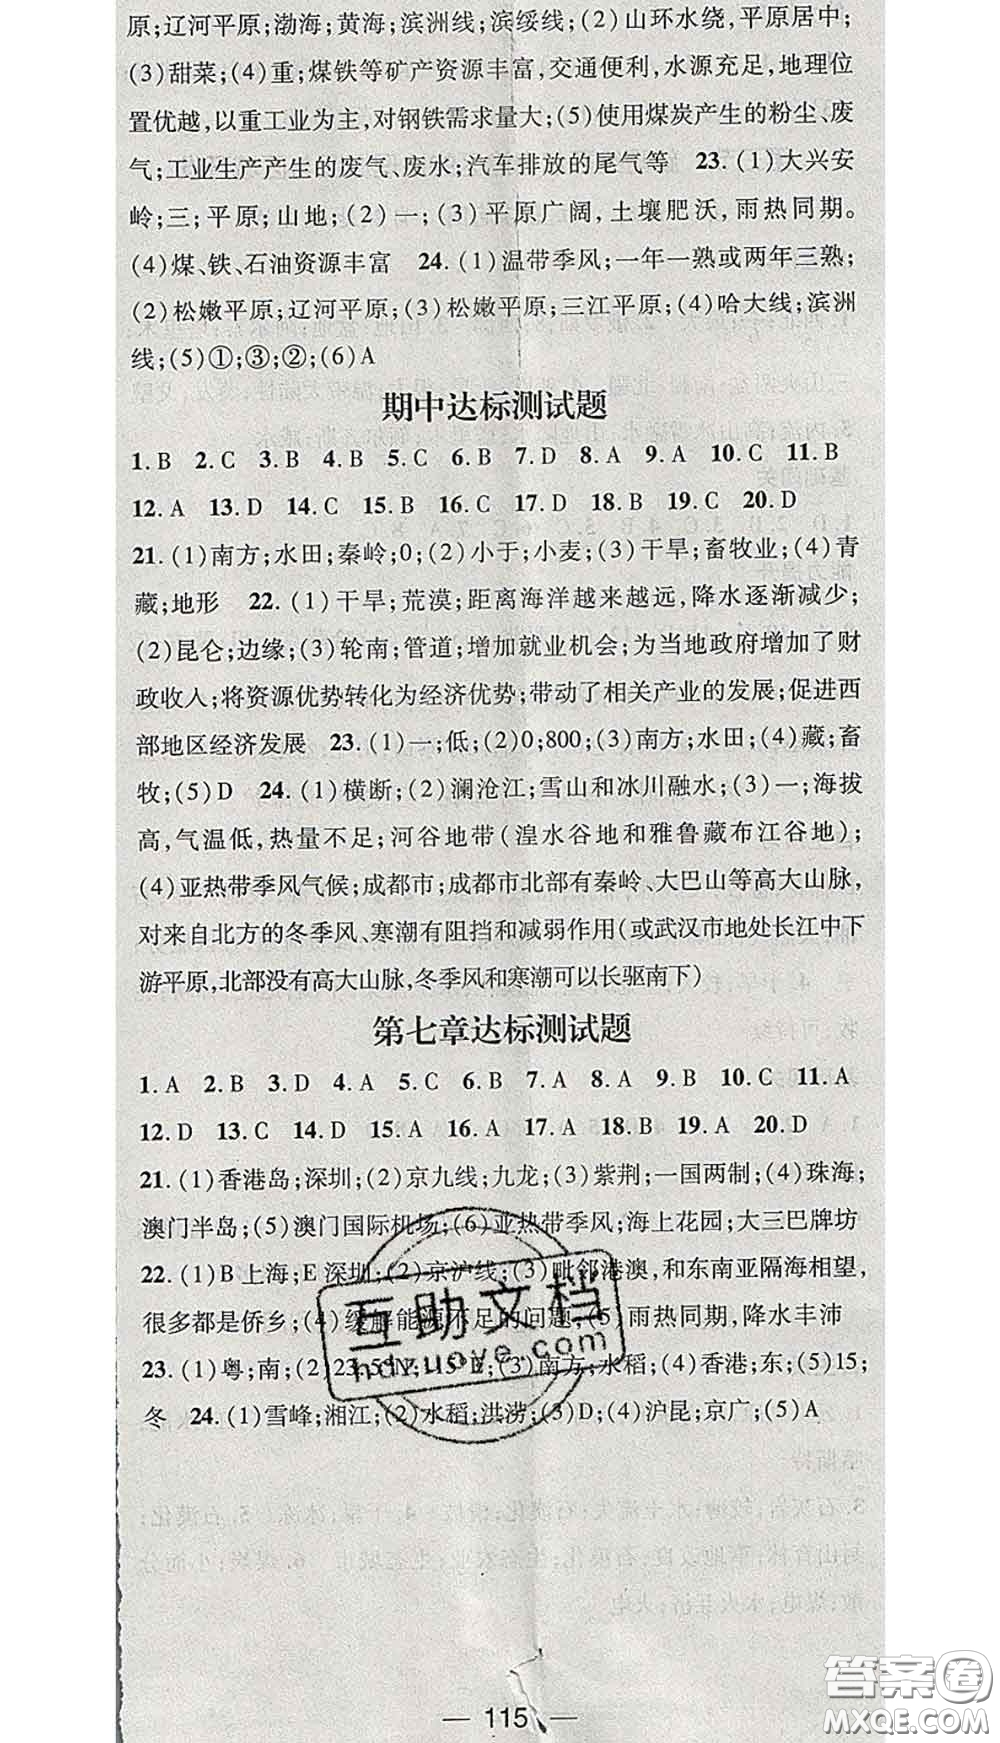 原;辽河平原;渤海;黄海;滨洲线;滨绥线;(2)山环水绕,平原居中;
(3)甜菜;(4)重;煤铁等矿产资源丰富,交通便利,水源充足,地理位
置优越,以重工业为主,对钢铁需求量大;(5)使用煤炭产生的粉尘、废
气;工业生产产生的废气、废水;汽车排放的尾气等 23. (1)大兴安
岭;三;平原;山地;(2)一;(3)平原广阔,土壤肥沃,雨热同期。
(4)煤、铁、石油资源丰富 24. (1)温带季风;一年一熟或两年三熟;
(2)松嫩平原;辽河平原;(3)松嫩平原;三江平原;(4)哈大线;滨洲
线;(5)①;③;②;(6)A
期中达标测试题
1. B 2. C 3. B 4. B 5. C 6. B 7. D 8. A 9. A 10. C 11. B
12. A 13. D 14. C 15. B 16. C 17. D 18. B 19. C 20. D
21. (1)南方;水田;秦岭;0;(2)小于;小麦;(3)干旱;畜牧业;(4)青
藏;地形 22. (1)干旱;荒漠;距离海洋越来越远,降水逐渐减少;
(2)昆仑;边缘;(3)轮南;管道;增加就业机会;为当地政府增加了财
政收入;将资源优势转化为经济优势;带动了相关产业的发展;促进西
部地区经济发展 23. (1)一;低;(2)0;800;(3)南方;水田;(4)藏;畜
牧;(5)D 24. (1)横断;(2)澜沧江;雪山和冰川融水;(3)一;海拔
高,气温低,热量不足;河谷地带(湟水谷地和雅鲁藏布江谷地);
(4)亚热带季风气候;成都市;成都市北部有秦岭、大巴山等高大山脉,
对来自北方的冬季风、寒潮有阻挡和减弱作用(或武汉市地处长江中下
游平原,北部没有高大山脉,冬季风和寒潮可以长驱南下)
第七章达标测试题
1. A 2. B 3. D 4. A 5. C 6. B 7. A 8. A 9. B 10. C 11. A
12. D 13. C 14. D 15. A 16. A 17. A 18. B 19. A 20. D
21. (1)香港岛;深圳;(2)京九线;九龙;(3)紫荆;一国两制;(4)珠海;
澳门半岛;(5)澳门国际机场;(6)亚热带季风;海上花园;大三巴牌坊
22. (1)B 上海;E 深圳;(2)京沪线;(3)毗邻港澳,和东南亚隔海相望,
很多都是侨乡;(4)缓解能源不足的问题;(5)雨热同期,降水丰沛
23. (1)粤;南;(2)23.5°N;115°E;(3)南方;水稻;(4)香港;东;(5)15;
冬 24. (1)雪峰;湘江;(2)水稻;洪涝;(3)D;(4)沪昆;京广;(5)A
互助文档
hdzuoye.com
— 115 —
答案圈
MXQE.COM